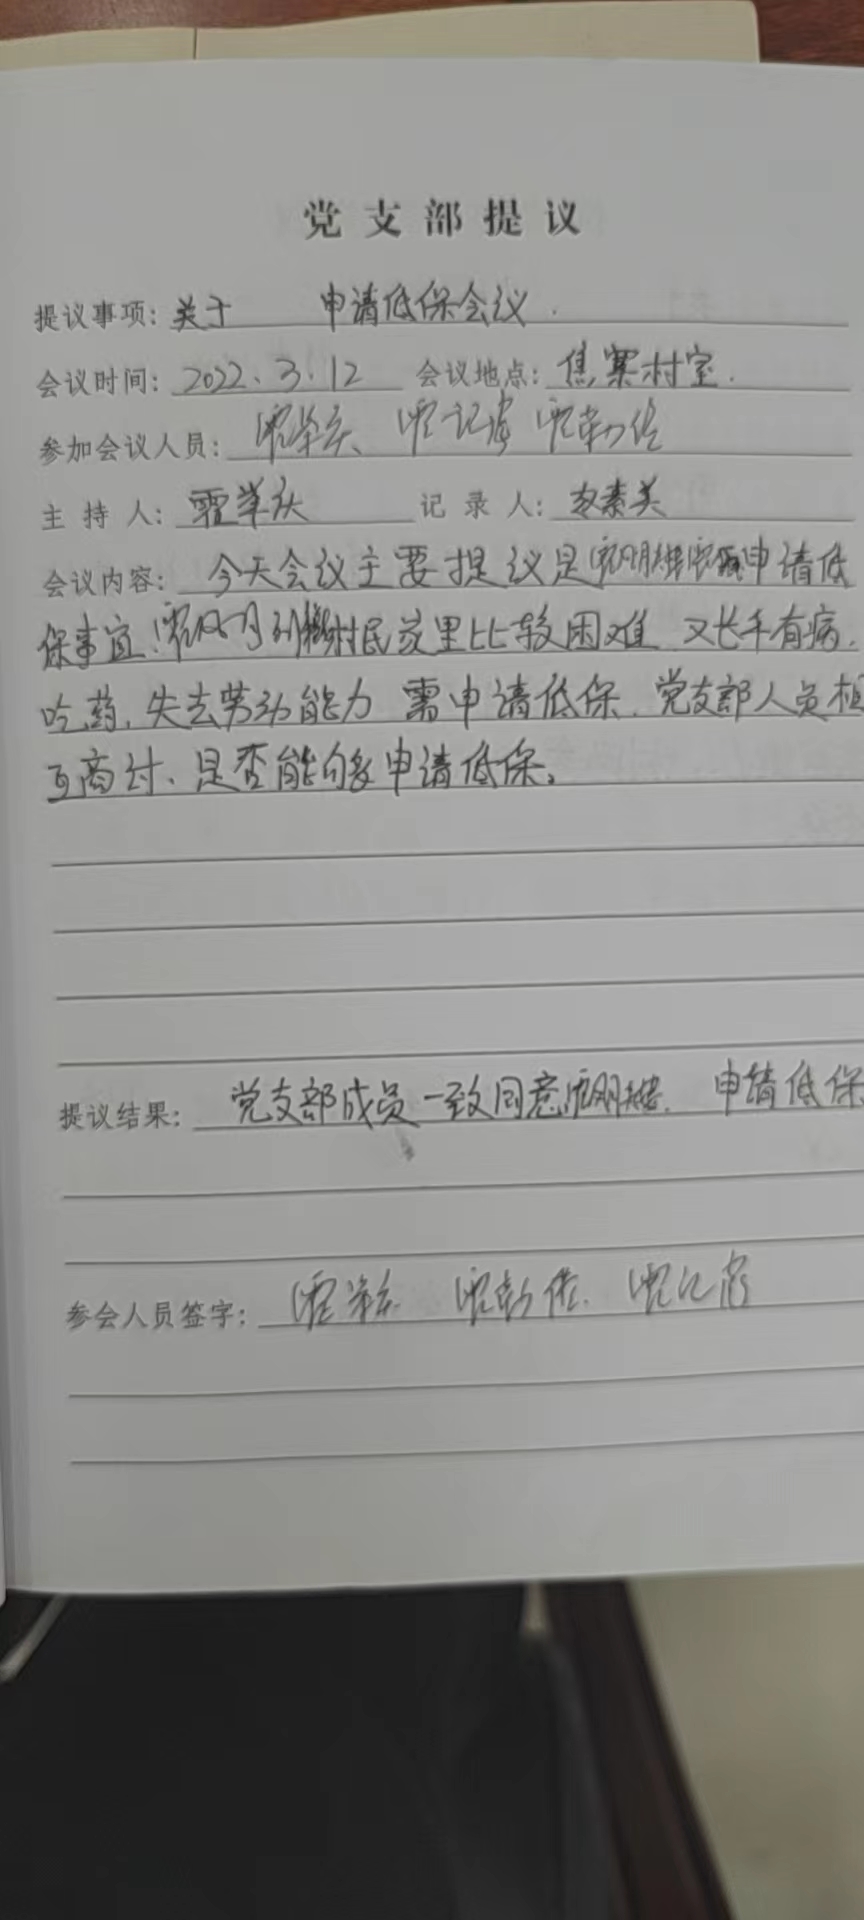 党支部提议
提议事项：关于 申请低保会议.
会议时间：2022.3.12 会议地点：焦寨村室.
参加会议人员：
主持人：霍举庆 记录人：李素关
会议内容：今天会议主要提议是 申请低
保事宜. 村民家里比较困难 又长年有病.
吃药.失去劳动能力 需申请低保.党支部人员相
互商讨、是否能够申请低保。
提议结果：党支部成员一致同意 申请低保
参会人员签字：